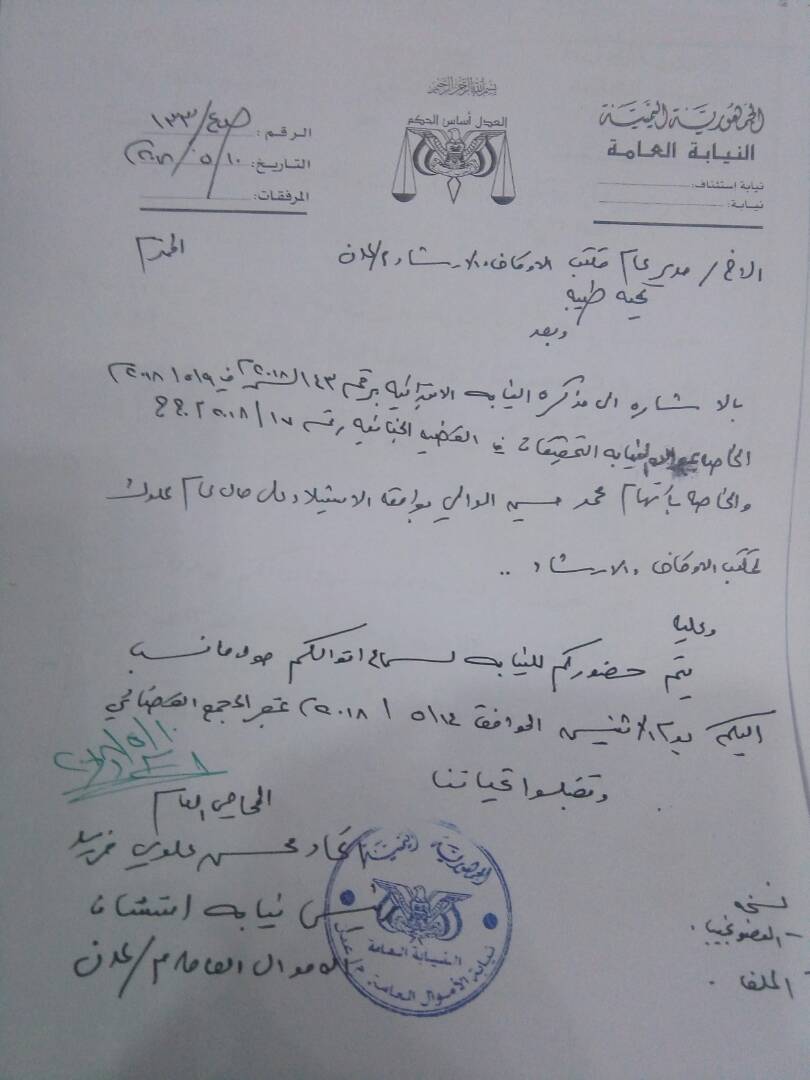 بسم الله الرحمن الرحيم
الجمهورية اليمنية
النيابة العامة
نيابة استئناف:
نيابة:
العدل أساس الحكم
الرقم: ١٣٣/٤٥
التاريخ: ١٠/٥/٢٠١٨
المرفقات:
الاخ/ مدير عام مكتب الاوقاف والارشاد م/عدن المحترم
تحيه طيبه
وبعد
بالاشاره الى مذكره النيابه الابتدائيه برقم ١٤٣ لسنة ٢٠١٨م في ٩/٥/٢٠١٨م
الخاصه التحقيقات في القضيه الجنائيه رقم ١٧/٢٠١٨م ج ج
والخاصه بأتهام محمد حسين الوالي بواقعه الاستيلاء على مال عام مملوك
لمكتب الاوقاف والارشاد ..
وعليه
يتم حضوركم للنيابه لسماع اقوالكم حول ما نسب
اليكم يوم الاثنين الموافق ١٤/٥/٢٠١٨م بمقر المجمع القضائي
وتفضلوا تحياتنا
المحامي العام
محسن علوي فريد
رئيس نيابه استئناف
الاموال العامه م/عدن
نسخه
- العضو
الملف .
الجمهورية اليمنية
النيابة العامة
نيابة الأموال العامة م/عدن